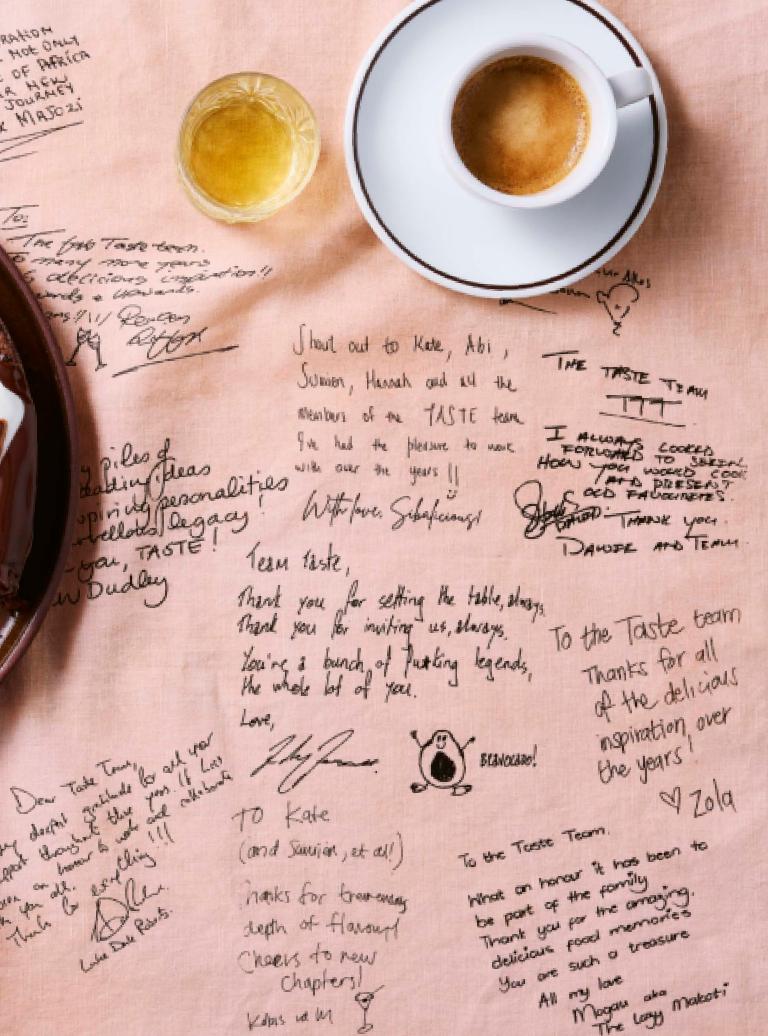 RATION
NOT ONLY
OF AFRICA
R NEW
JOURNEY
MAJOZI
To:
The fab Taste team.
many more years
delicious inspiration!!
& upwards.
Shout out to Kate, Abi,
Sumien, Hannah and all the
members of the TASTE team
I've had the pleasure to work
with over the years!!
With love, Sibalicious!
THE TASTE TEAM
I ALWAYS LOOKED
FORWARD TO SEEING
HOW YOU WOULD COOK
AND PRESENT
OLD FAVOURITES.
THANK YOU.
DAWIE AND TEAM.
y piles of
eading ideas
spiring personalities
rvellous legacy!
you, TASTE!
w Dudley
Team Taste,
Thank you for setting the table, always.
Thank you for inviting us, always.
You're a bunch of fu*king legends,
the whole lot of you.
Love,
BRAVOCADO!
To the Taste team
Thanks for all
of the delicious
inspiration over
the years!
Zola
Dear Taste Team,
my deepest gratitude for all your
support throughout these years. It has
been an honour to work and collaborate
with you all.
Thank for everything!!!
Luke Dale Roberts.
TO Kate
(and Sumien, et al!)
Thanks for tremendous
depth of flavour!
Cheers to new
chapters!
Kobus vd M
To the Taste Team.
What an honour it has been to
be part of the family
Thank you for the amazing,
delicious food memories
You are such a treasure
All my love
Mogau aka
The Lazy Makoti